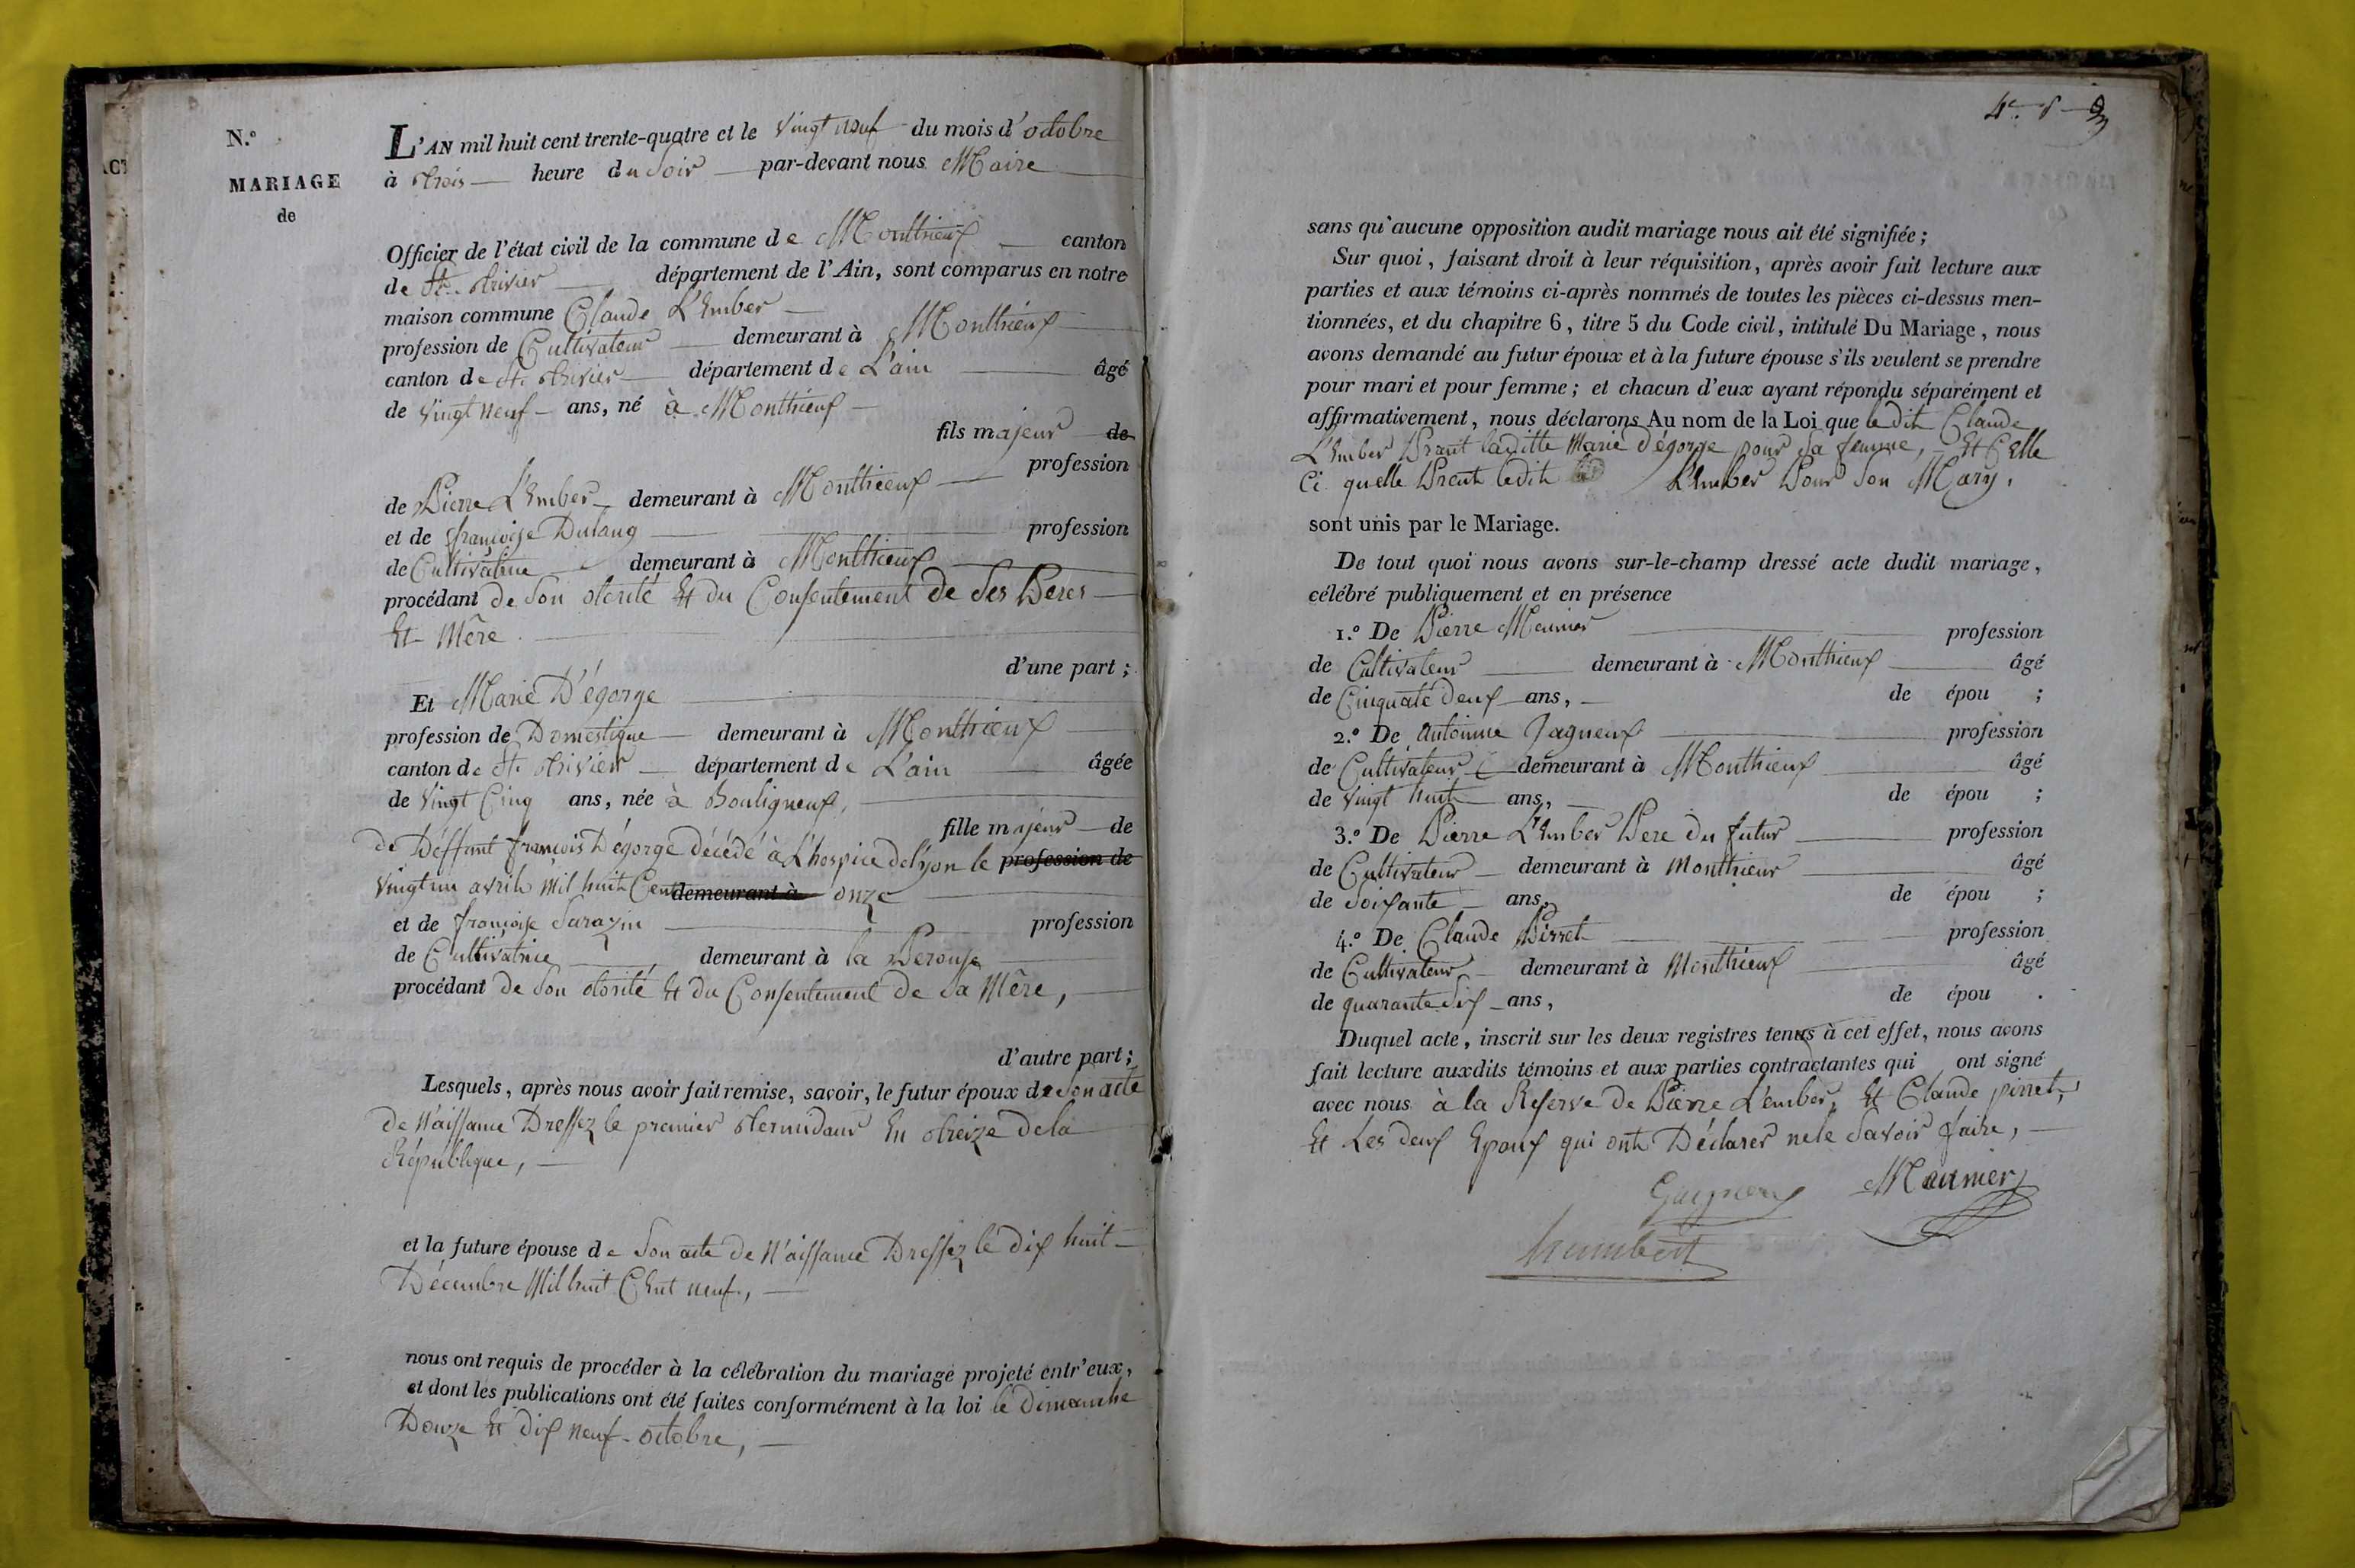 N.º
MARIAGE
de
L'AN mil huit cent trente-quatre et le vingt neuf du mois d'octobre
à trois heure du Soir par-devant nous Maire
Officier de l'état civil de la commune de Monthieux canton
de St. trivier département de l'Ain, sont comparus en notre
maison commune Claude L'Ember
profession de Cultivateur demeurant à Monthieux
canton de St. trivier département de L'ain âgé
de vingt neuf ans, né à Monthieux
fils majeur de
profession
de Pierre L'Ember demeurant à Monthieux
et de françoise Dulang profession
de Cultivatrice demeurant à Monthieux
procédant de Son otorité Et du Consentement de Ses Peres
Et Mêre
d'une part ;
Et Marie D'égorge
profession de Domestique demeurant à Monthieux
canton de St. trivier département de L'ain âgée
de vingt Cinq ans, née à Bouligneux,
fille majeur de
de Déffunt francois D'égorge décédé à L'hospice de lyon le profession de
vingt un avril Mil huit Cent demeurant à onze
et de françoise Sarazin profession
de Cultivatrice demeurant à la Perouse
procédant de Son otorité Et du Consentement de Sa Mêre,
d'autre part ;
Lesquels, après nous avoir fait remise, savoir, le futur époux de Son acte
de N'aissance Dressez le premier termidaur En treize de la
République,
et la future épouse de Son acte de N'aissance Dressez le dix huit
Décembre Mil huit Cent neuf,
nous ont requis de procéder à la célébration du mariage projeté entr'eux,
et dont les publications ont été faites conformément à la loi le dimanche
Douze Et dix neuf octobre,
sans qu'aucune opposition audit mariage nous ait été signifiée ;
Sur quoi, faisant droit à leur réquisition, après avoir fait lecture aux
parties et aux témoins ci-après nommés de toutes les pièces ci-dessus men-
tionnées, et du chapitre 6, titre 5 du Code civil, intitulé Du Mariage, nous
avons demandé au futur époux et à la future épouse s'ils veulent se prendre
pour mari et pour femme ; et chacun d'eux ayant répondu séparément et
affirmativement, nous déclarons Au nom de la Loi que le dit Claude
L'Ember Prant laditte Marie D'égorge pour Sa femme, Et Celle
Ci quelle Prent ledit L'Ember Pour Son Mary,
sont unis par le Mariage.
De tout quoi nous avons sur-le-champ dressé acte dudit mariage,
célébré publiquement et en présence
1.º De Pierre Meunier profession
de Cultivateur demeurant à Monthieux âgé
de Cinquate deux ans, de épou ;
2.º De Antoinne Gagneux profession
de Cultivateur demeurant à Monthieux âgé
de vingt huit ans, de épou ;
3.º De Pierre L'Ember Pere du futur profession
de Cultivateur demeurant à Monthieux âgé
de Soixante ans, de épou ;
4.º De Claude Pirret profession
de Cultivateur demeurant à Monthieux âgé
de quarante Six ans, de épou .
Duquel acte, inscrit sur les deux registres tenus à cet effet, nous avons
fait lecture auxdits témoins et aux parties contractantes qui ont signé
avec nous à la Reserve de Pierre L'ember, Et Claude pirret,
Et Les deux Epoux qui ont Déclarer ne le Savoir faire,
Gagneux Meunier
humbert